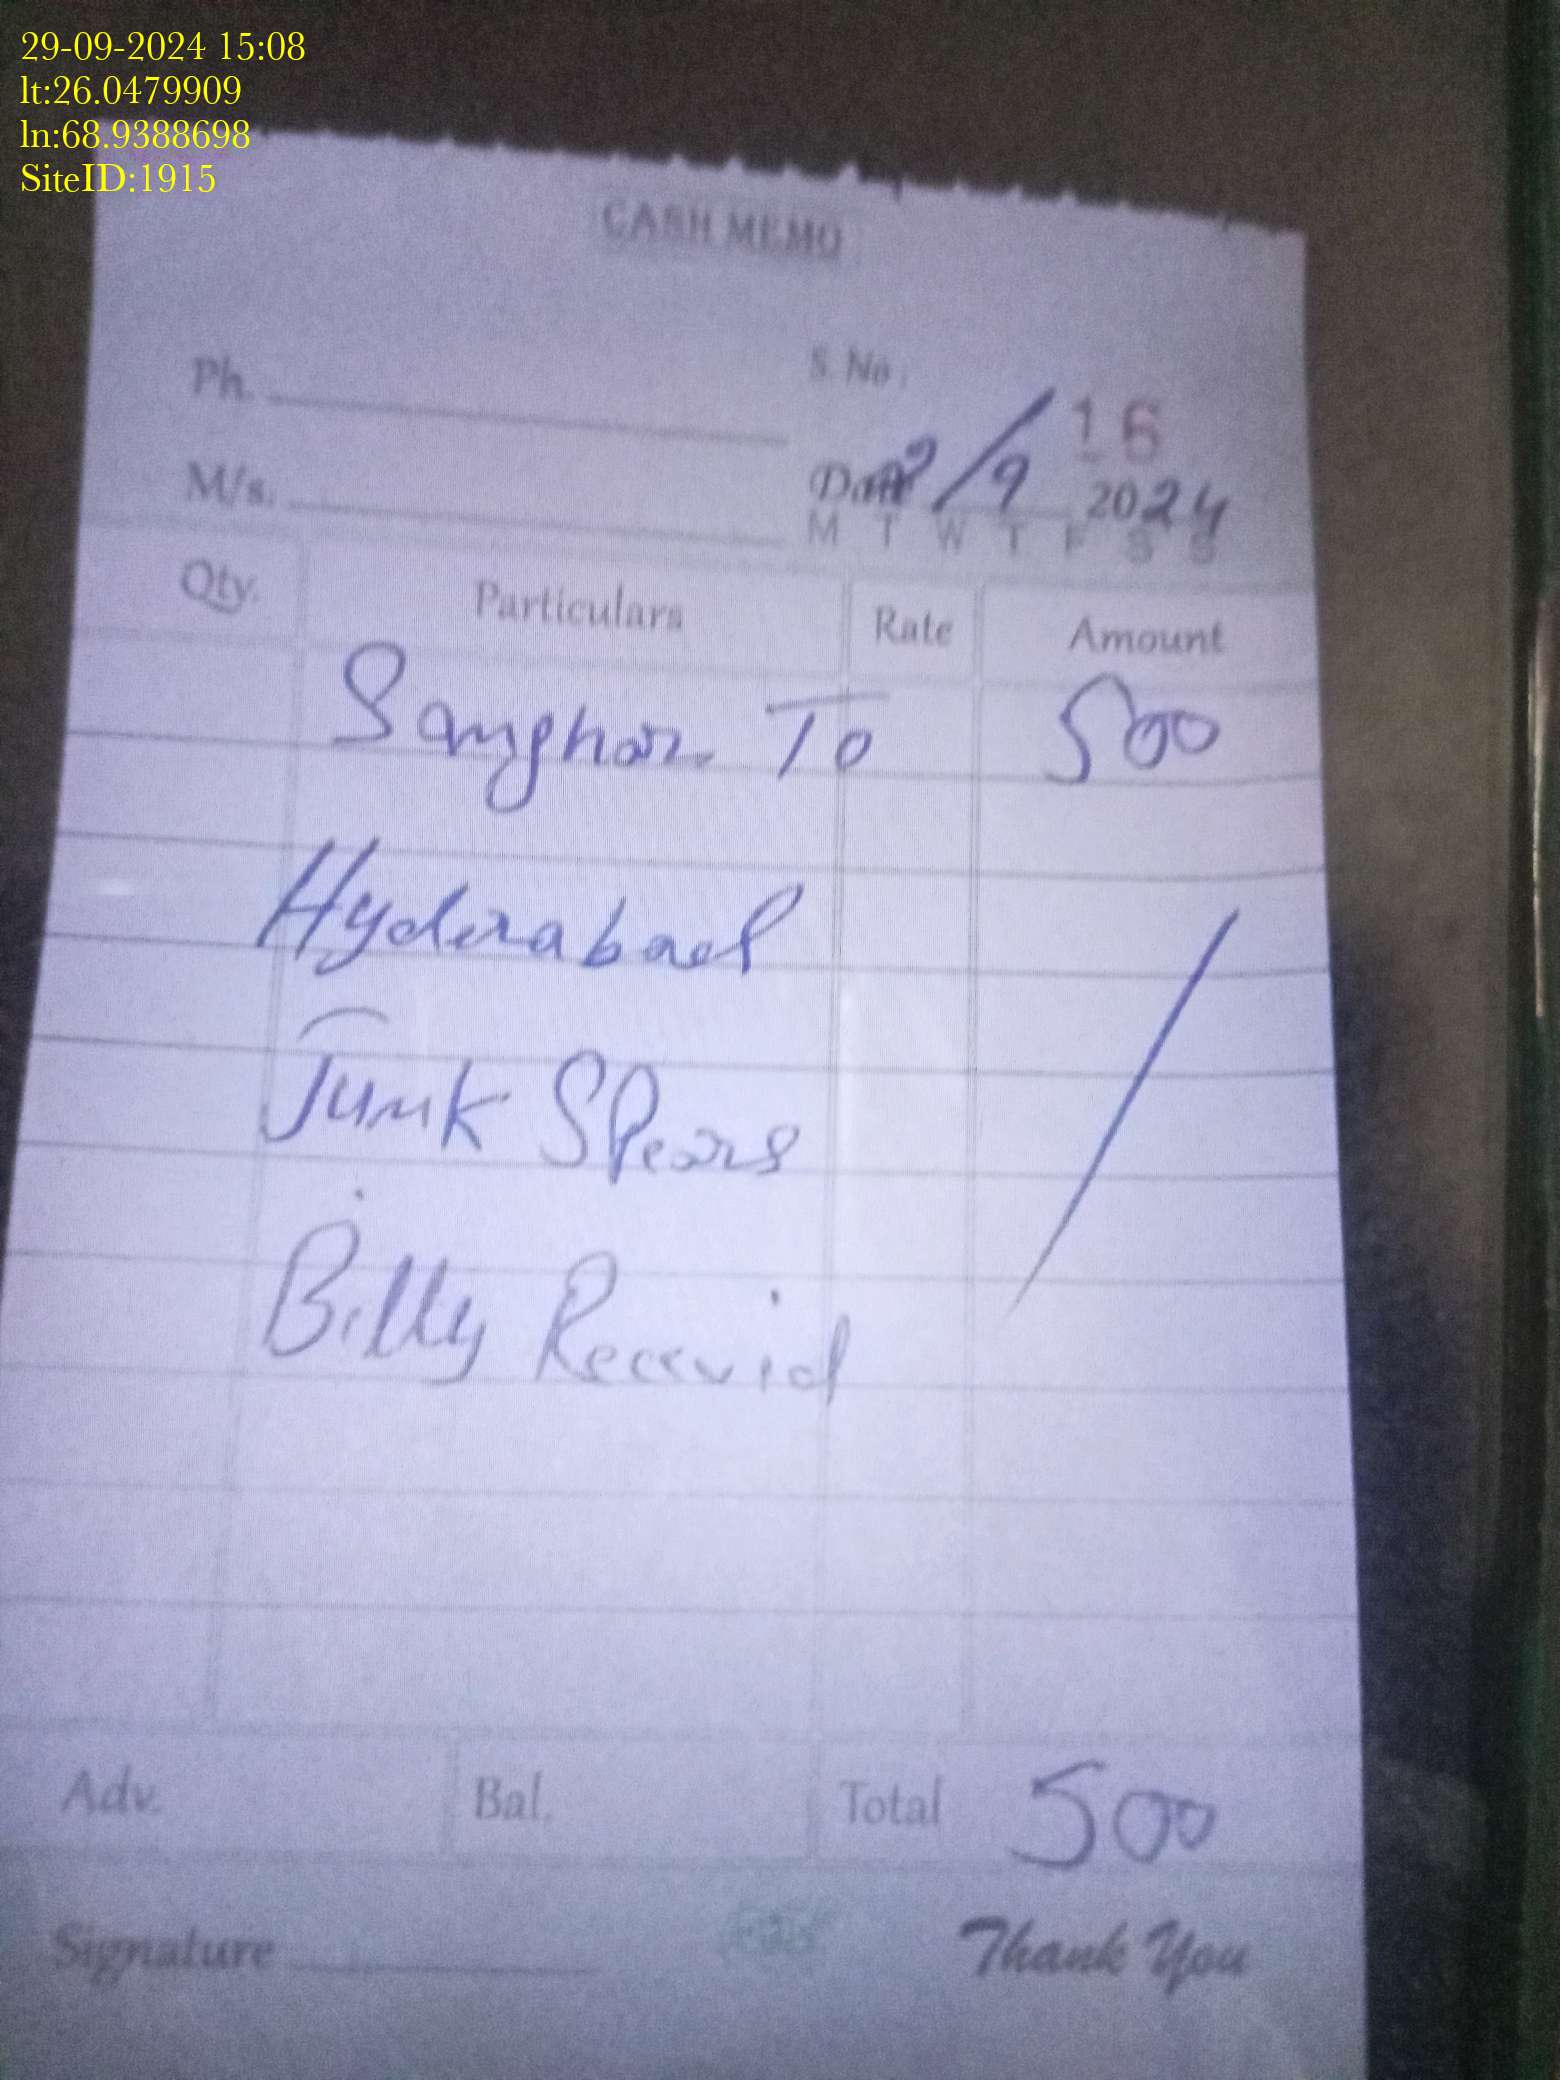 29-09-2024 15:08
lt:26.0479909
ln:68.9388698
SiteID:1915
CASH MEMO
Ph.
S. No.
16
M/s.
Date /9 2024
M T W T F S S
Qty. Particulars Rate Amount
Sanghar To 500
Hyderabad
Junk SPears
Billy Recevid
Adv. Bal. Total 500
Signature Thank You